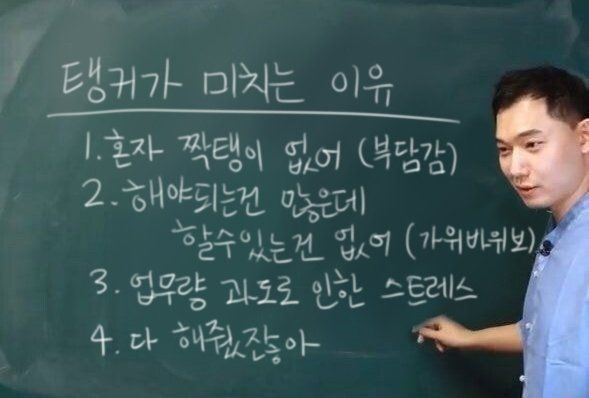 탱커가 미치는 이유
1. 혼자 짝탱이 없어 (부담감)
2. 해야되는건 많은데
할수있는건 없어 (가위바위보)
3. 업무량 과도로 인한 스트레스
4. 다 해줬잖아